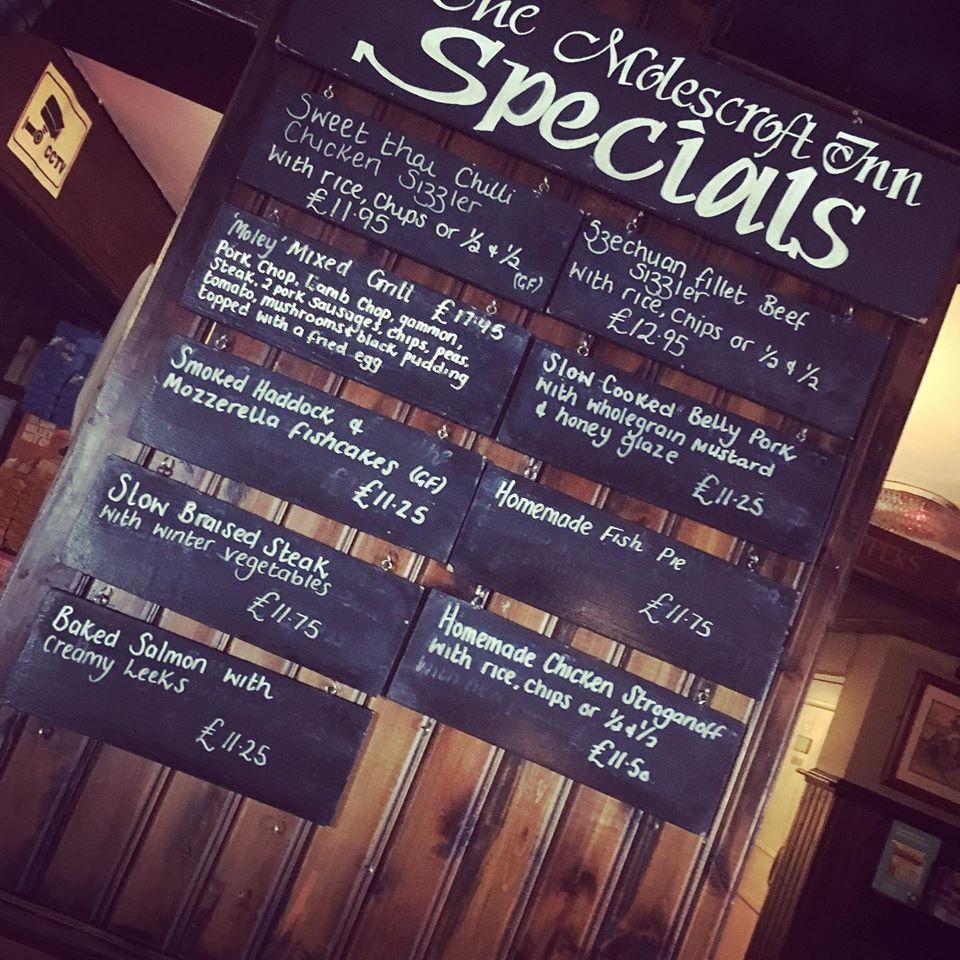 The Molescroft Inn
Specials
CCTV
Sweet thai Chilli
Chicken Sizzler
with rice, chips or ½ & ½
£11.95
(GF)
'Moley' Mixed Grill £17.45
Pork Chop, Lamb Chop, gammon,
Steak, 2 pork sausages, chips, peas,
tomato, mushrooms & black pudding
topped with a fried egg
Smoked Haddock &
Mozzerella fishcakes (GF)
£11.25
Slow Braised Steak
with winter vegetables
£11.75
Baked Salmon with
creamy Leeks
£11.25
Szechuan fillet Beef
Sizzler
with rice, chips or ½ & ½
£12.95
Slow Cooked Belly Pork
with wholegrain mustard
& honey glaze
£11.25
Homemade Fish Pie
£11.75
Homemade Chicken Stroganoff
with rice, chips or ½ & ½
£11.50